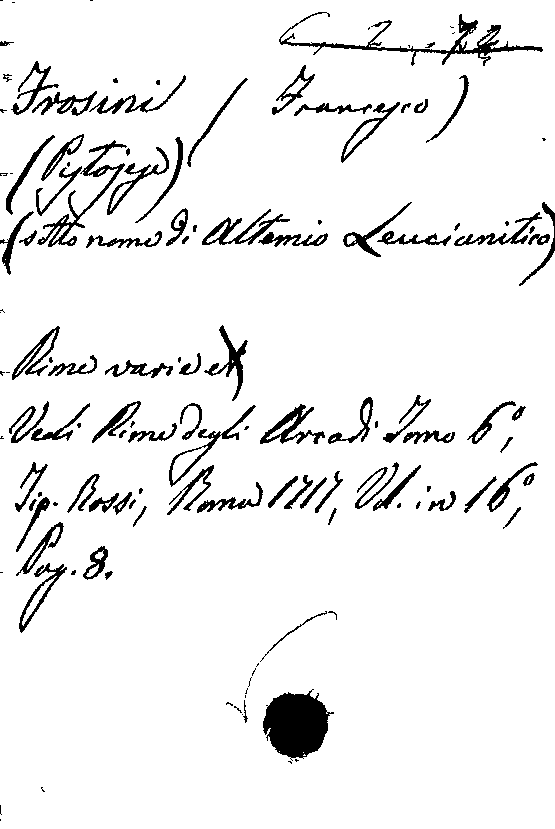 6. 2. 72
Frosini / Francesco)
(Pistojese)
(sotto nome di Altemio Leucianitico)
Rime varie
Vedi Rime degli Arcadi Tomo 6°,
Tip. Rossi, Roma 1717, Vol. in 16°,
Pag. 8.